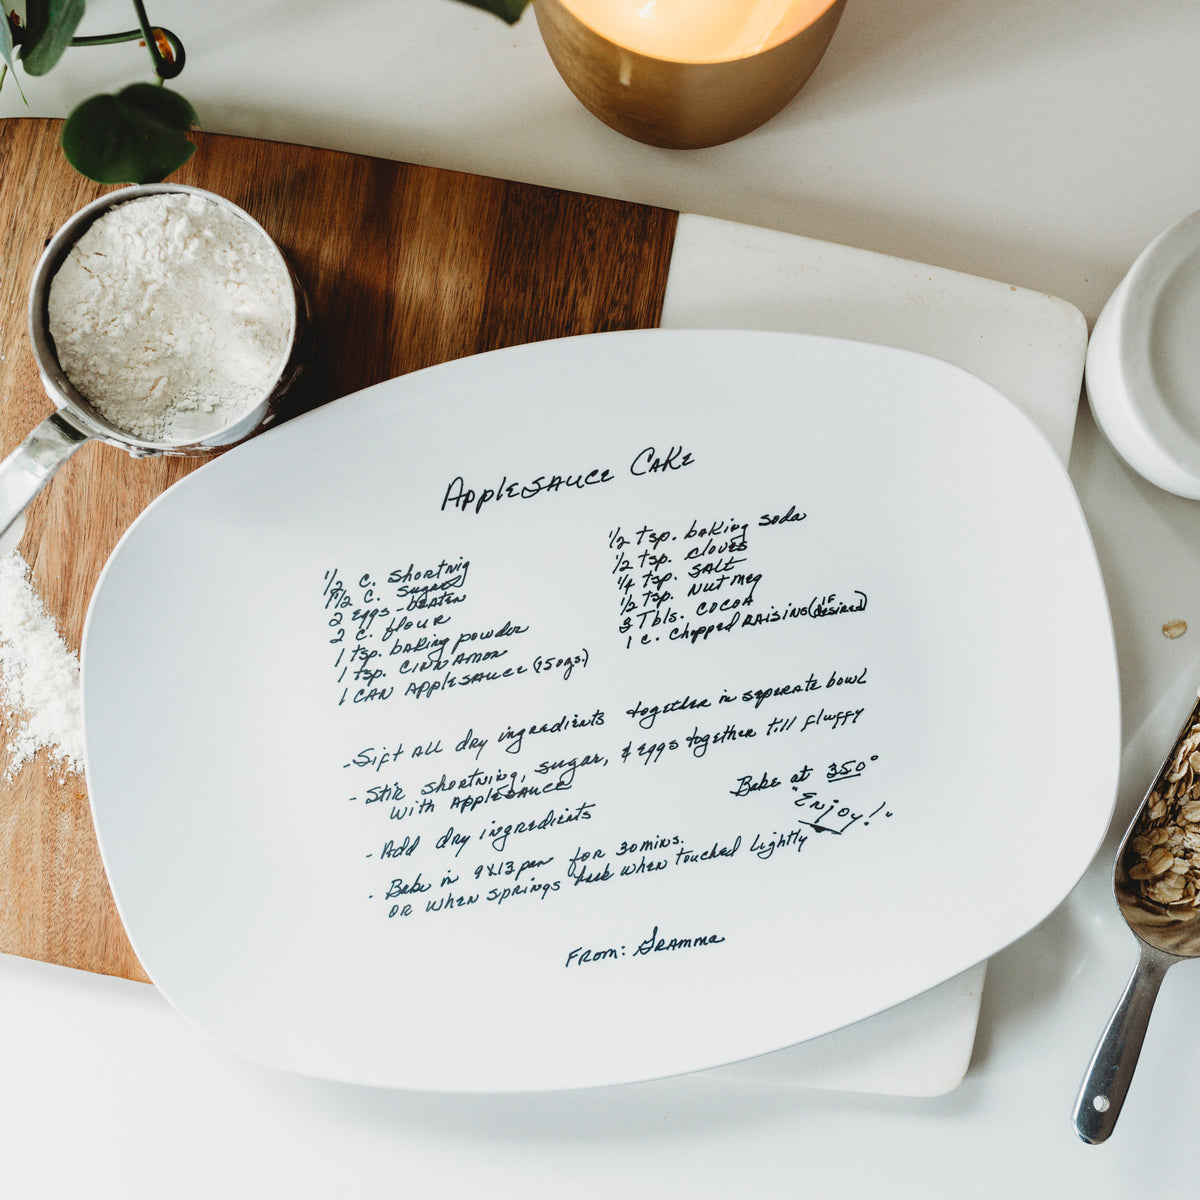 Applesauce Cake
1/2 c. shortnig
1 1/2 c. sugar
2 eggs - beaten
2 c. flour
1 tsp. baking powder
1 tsp. cinnamon
1 can applesauce (15 ozs.)
1/2 tsp. baking soda
1/2 tsp. cloves
1/4 tsp. salt
1/2 tsp. nutmeg
3 Tbls. cocoa
1 c. chopped raisins (if desired)
- Sift all dry ingredients together in seperate bowl
- Stir shortning, sugar, & eggs together till fluffy
with applesauce
- Add dry ingredients
- Bake in 9x13 pan for 30 mins.
or when springs back when touched lightly
Bake at 350°
"Enjoy!"
From: Gramma